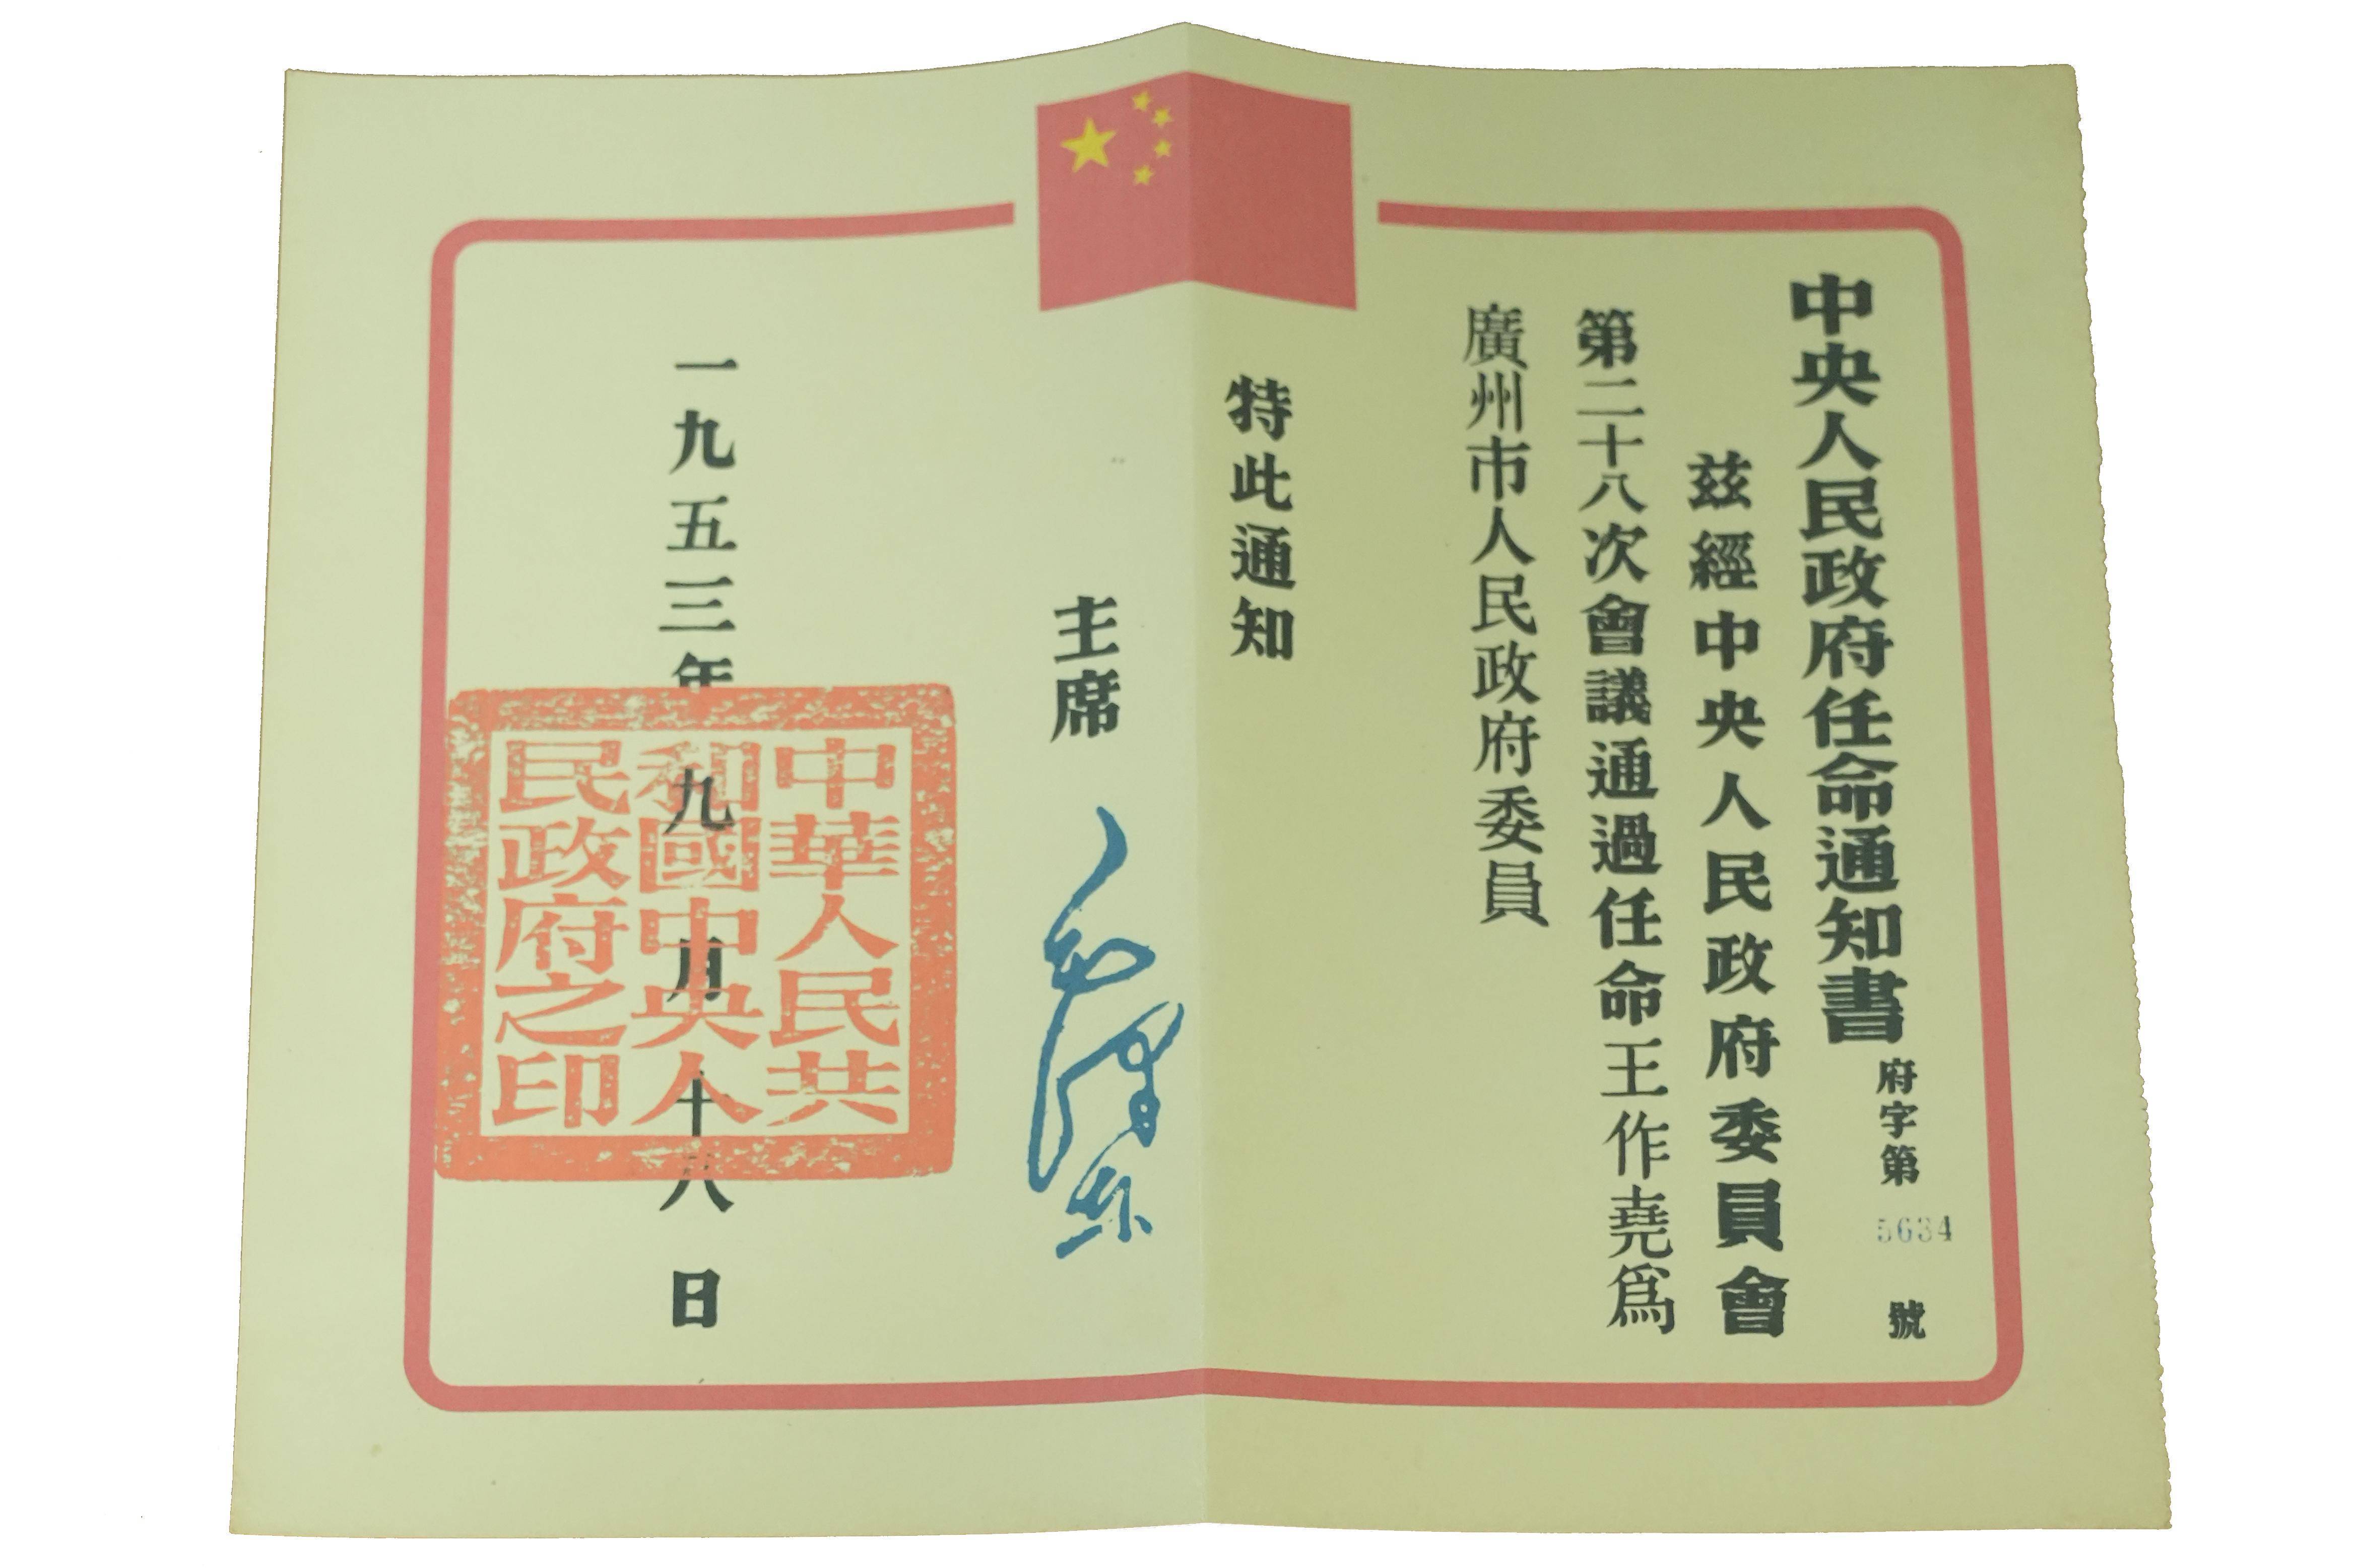 中央人民政府任命通知書
府字第 5634 號
茲經中央人民政府委員會
第二十八次會議通過任命王作堯爲
廣州市人民政府委員
特此通知
主席 毛澤東
一九五三年九月十八日
中華人民共
和國中央人
民政府之印